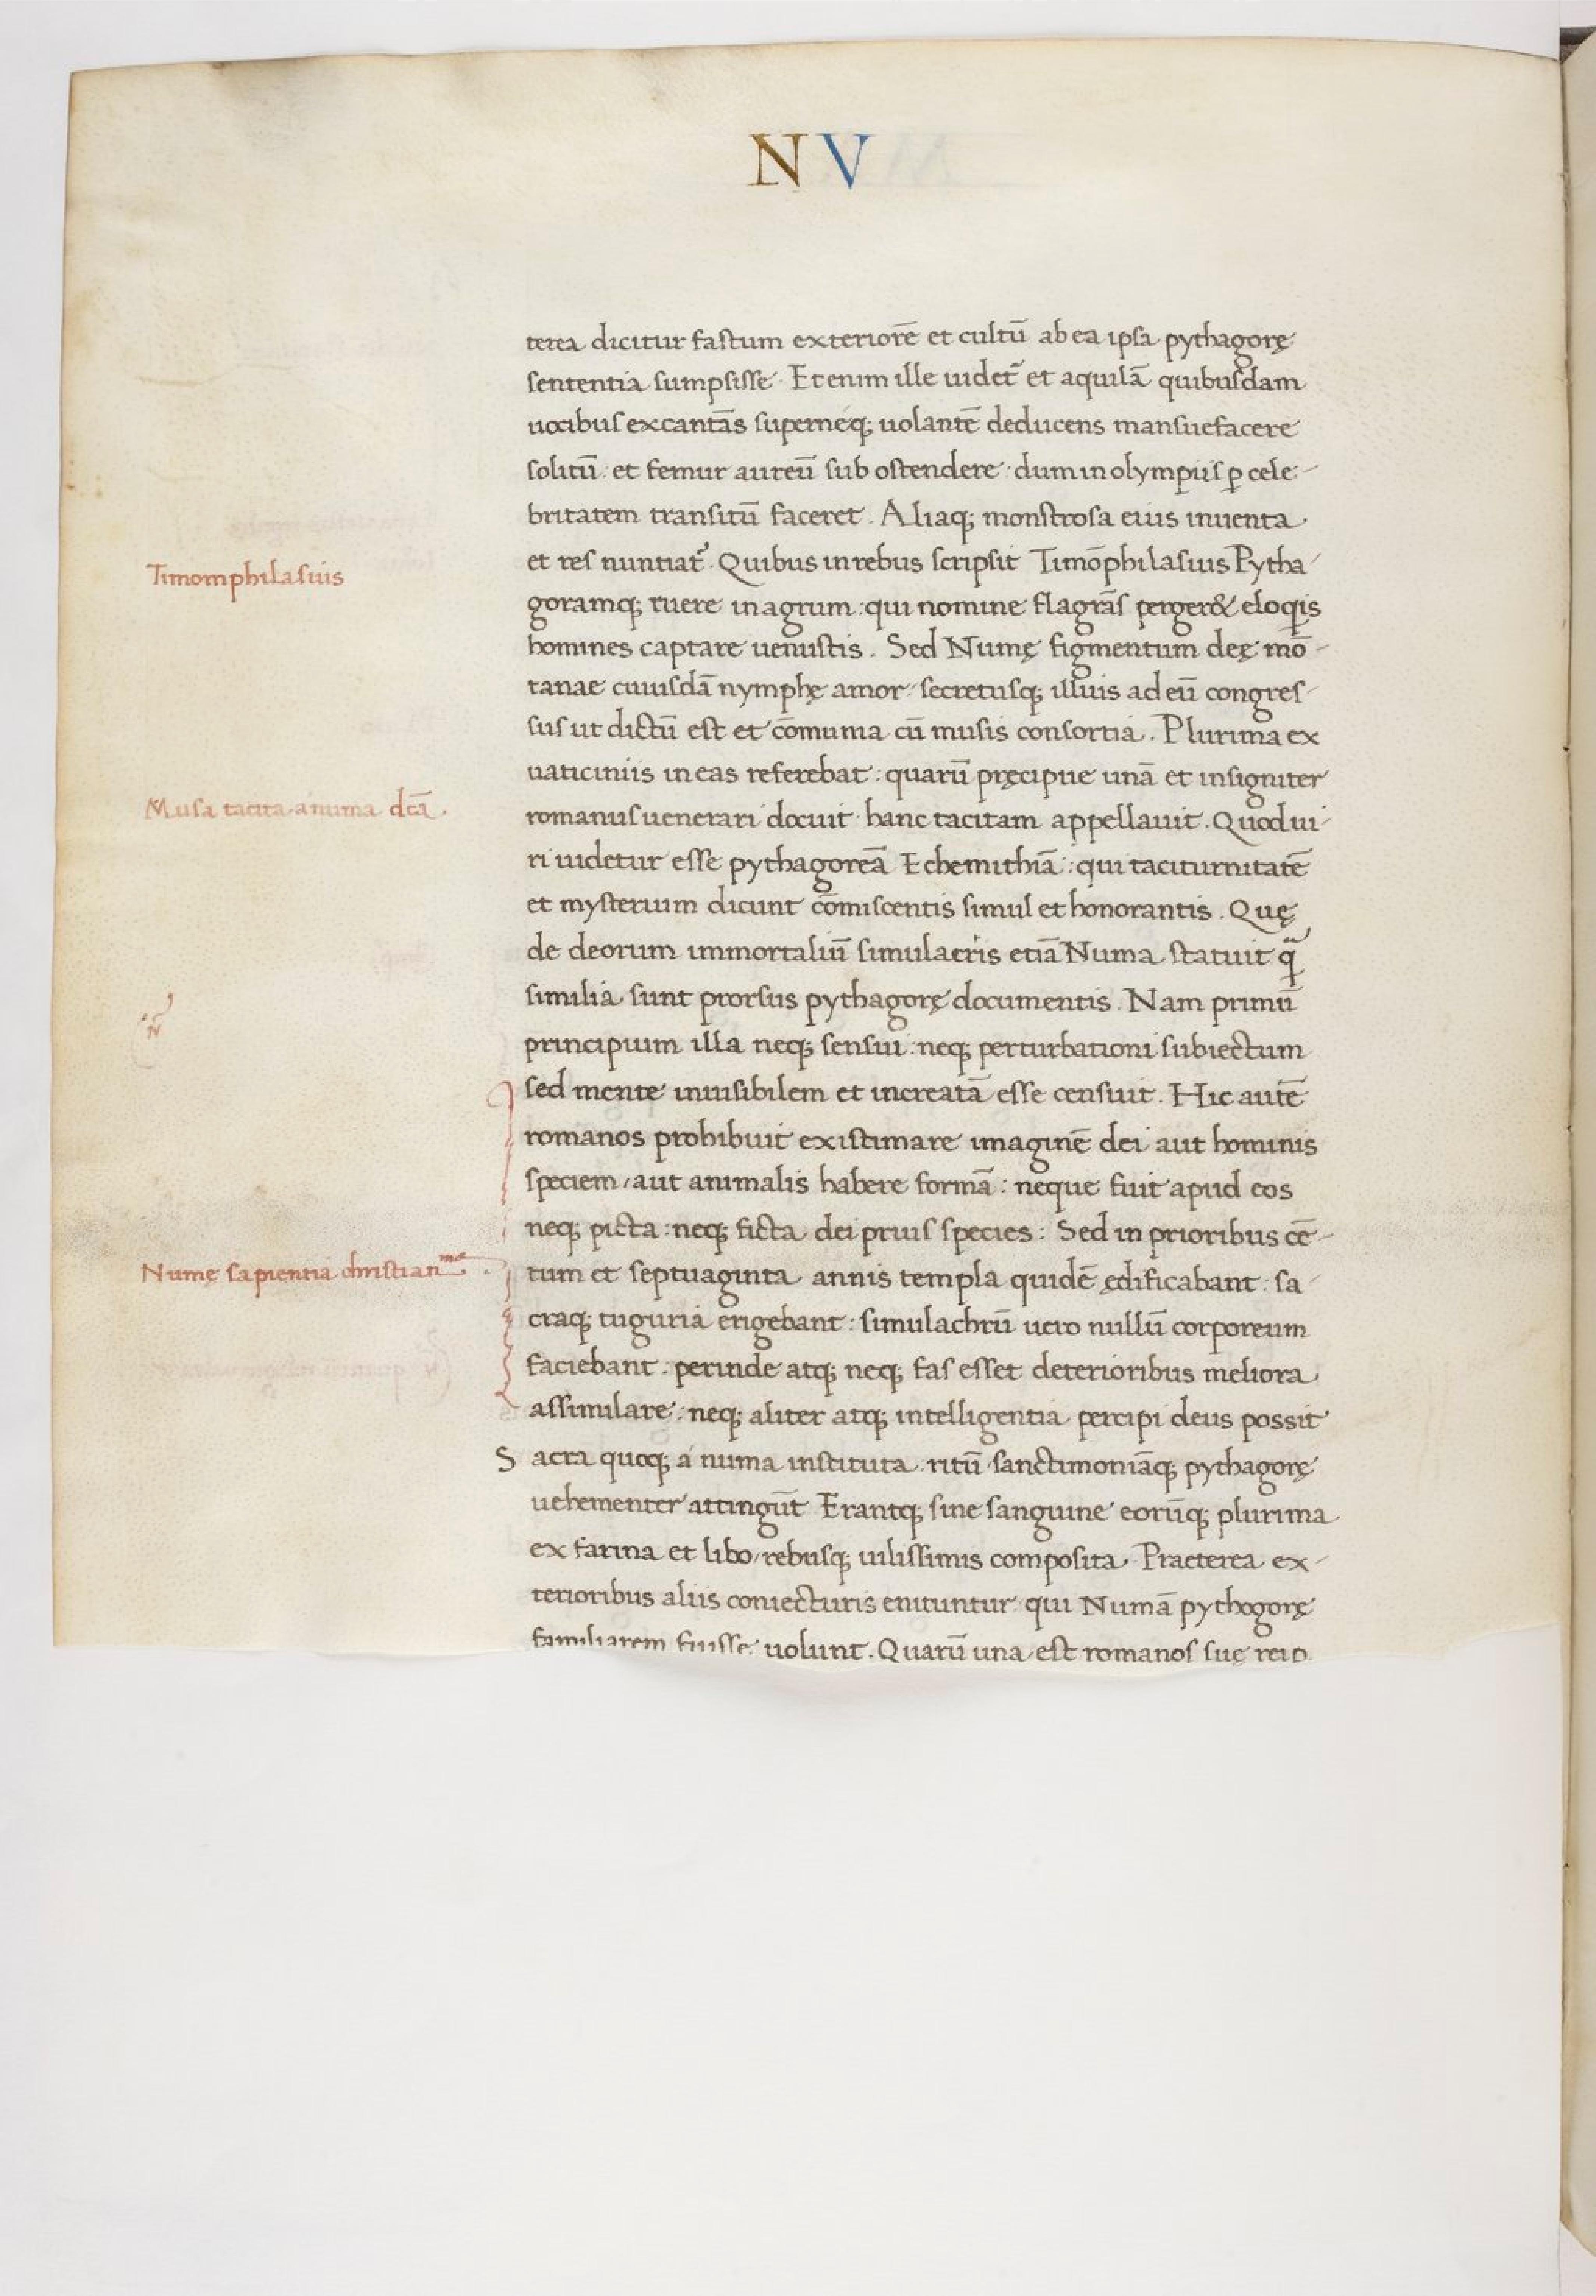 NV
terea dicitur fastum exteriorē et cultū ab ea ipsa pythagorę
sententia sumpsisse. Et enim ille uidet̄ et aquilā quibusdam
uocibus excantās superneq; uolantē deducens mansuefacere
solitū: et femur aureū sub ostendere: dum in olympiis ꝑ cele-
britatem transitū faceret. Aliaq; monstrosa eius inuenta
et res nuntiat̄. Quibus in rebus scripsit Timōphilasius Pytha-
Timomphilasius
goramq; ruere in agrum: qui nomine flagrās perger& eloqis
homines captare uenustis. Sed Numę figmentum deę mō-
tanae cuiusdā nymphę amor: secretusq; illuis ad eū congres-
sus ut dictū est et cōmunia cū musis consortia. Plurima ex
uaticiniis in eas referebat: quarū pręcipue unā et insigniter
Musa tacita a numa dcā.
romanus uenerari docuit hanc tacitam appellauit. Quod ui-
ri uidetur esse pythagoreā Echemithiā: qui taciturnitatē
et mysterium dicunt cōmiscentis simul et honorantis. Quę
de deorum immortaliū simulacris etiā Numa statuit
similia sunt prorsus pythagorę documentis. Nam primū
principium illa neq; sensui: neq; perturbationi subiectum
sed mente inuisibilem et increatā esse censuit. Hic autē
romanos prohibuit existimare imaginē dei aut hominis
speciem, aut animalis habere formā: neque fuit apud eos
neq; picta: neq; ficta dei prius species: Sed in prioribus cē-
Numę sapientia christian
tum et septuaginta annis templa quidē ędificabant: sa-
craq; tuguria erigebant: simulachrū uero nullū corporeum
faciebant. perinde atq; neq; fas esset deterioribus meliora
assimilare: neq; aliter atq; intelligentia percipi deus possit
Sacra quoq; a numa instituta ritū sanctimoniāq; pythagorę
uehementer attingūt Erantq; sine sanguine eorūq; plurima
ex farina et libo, rebusq; uilissimis composita. Praeterea ex-
terioribus aliis coniecturis enituntur qui Numā pythogorę
familiarem fuisse uolunt. Quarū una est romanos suę